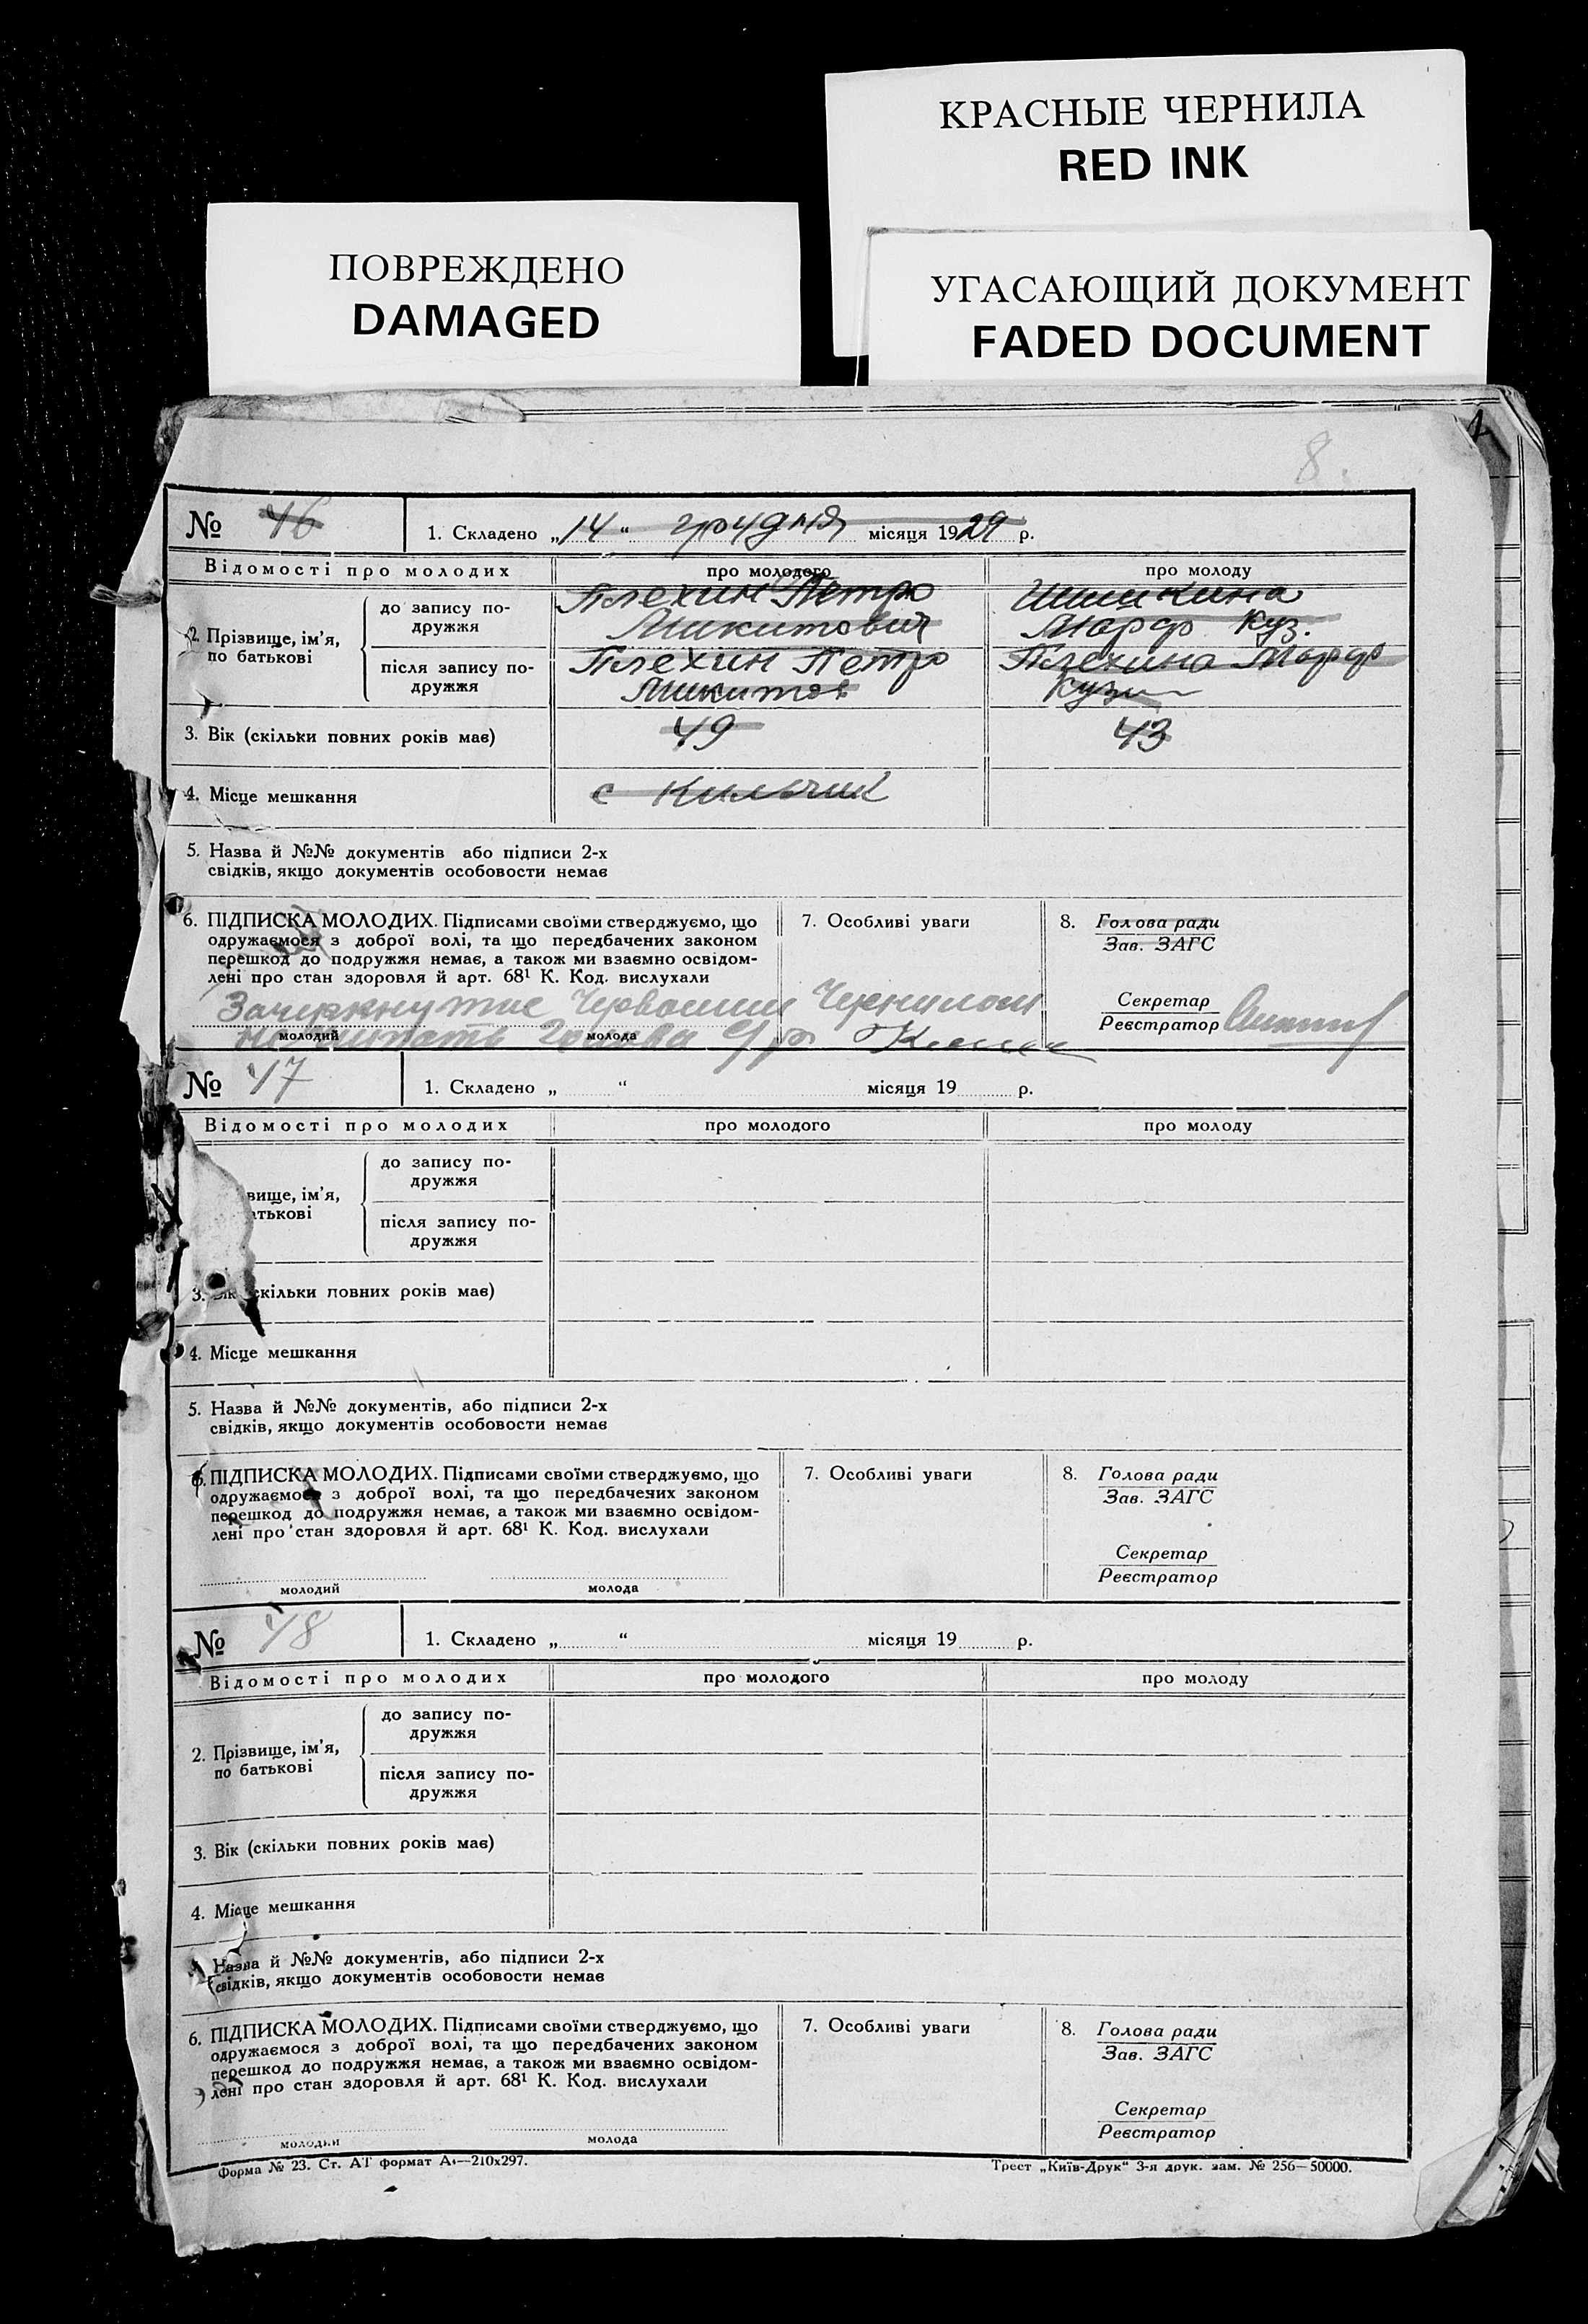 КРАСНЫЕ ЧЕРНИЛА
RED INK
ПОВРЕЖДЕНО
DAMAGED
УГАСАЮЩИЙ ДОКУМЕНТ
FADED DOCUMENT
8.
№ 46 1. Складено „14“ грудня місяця 1929 р.
Відомості про молодих про молодого про молоду
2. Прізвище, ім’я, по батькові
до запису подружжя Плехин Петро Микитович Шишкина Марф Куз.
після запису подружжя Плехин Петро Микитов Плехина Марф Кузм
3. Вік (скільки повних років має) 49 43
4. Місце мешкання с Кильчик
5. Назва й №№ документів або підписи 2-х
свідків, якщо документів особовости немає
6. ПІДПИСКА МОЛОДИХ. Підписами своїми стверджуємо, що 7. Особливі уваги 8. Голова ради
одружаємося з доброї волі, та що передбачених законом Зав. ЗАГС
перешкод до подружжя немає, а також ми взаємно освідом-
лені про стан здоровля й арт. 68¹ К. Код. вислухали Секретар
Зачеркнутие Червоними Чернилом Реєстратор
молодий молода Голова с/р
№ 47 1. Складено „ “ місяця 19 р.
Відомості про молодих про молодого про молоду
вище, ім’я,
атькові
до запису по-
дружжя
після запису по-
дружжя
3. Вік скільки повних років має)
4. Місце мешкання
5. Назва й №№ документів, або підписи 2-х
свідків, якщо документів особовости немає
6. ПІДПИСКА МОЛОДИХ. Підписами своїми стверджуємо, що 7. Особливі уваги 8. Голова ради
одружаємося з доброї волі, та що передбачених законом Зав. ЗАГС
перешкод до подружжя немає, а також ми взаємно освідом-
лені про стан здоровля й арт. 68¹ К. Код. вислухали
Секретар
Реєстратор
молодий молода
№ 48 1. Складено „ “ місяця 19 р.
Відомості про молодих про молодого про молоду
2. Прізвище, ім’я,
по батькові
до запису по-
дружжя
після запису по-
дружжя
3. Вік (скільки повних років має)
4. Місце мешкання
Назва й №№ документів, або підписи 2-х
свідків, якщо документів особовости немає
6. ПІДПИСКА МОЛОДИХ. Підписами своїми стверджуємо, що 7. Особливі уваги 8. Голова ради
одружаємося з доброї волі, та що передбачених законом Зав. ЗАГС
перешкод до подружжя немає, а також ми взаємно освідом-
лені про стан здоровля й арт. 68¹ К. Код. вислухали
Секретар
Реєстратор
молодий молода
Форма № 23. Ст. АТ формат А₄—210х297. Трест „Київ-Друк“ 3-я друк. зам. № 256—50000.